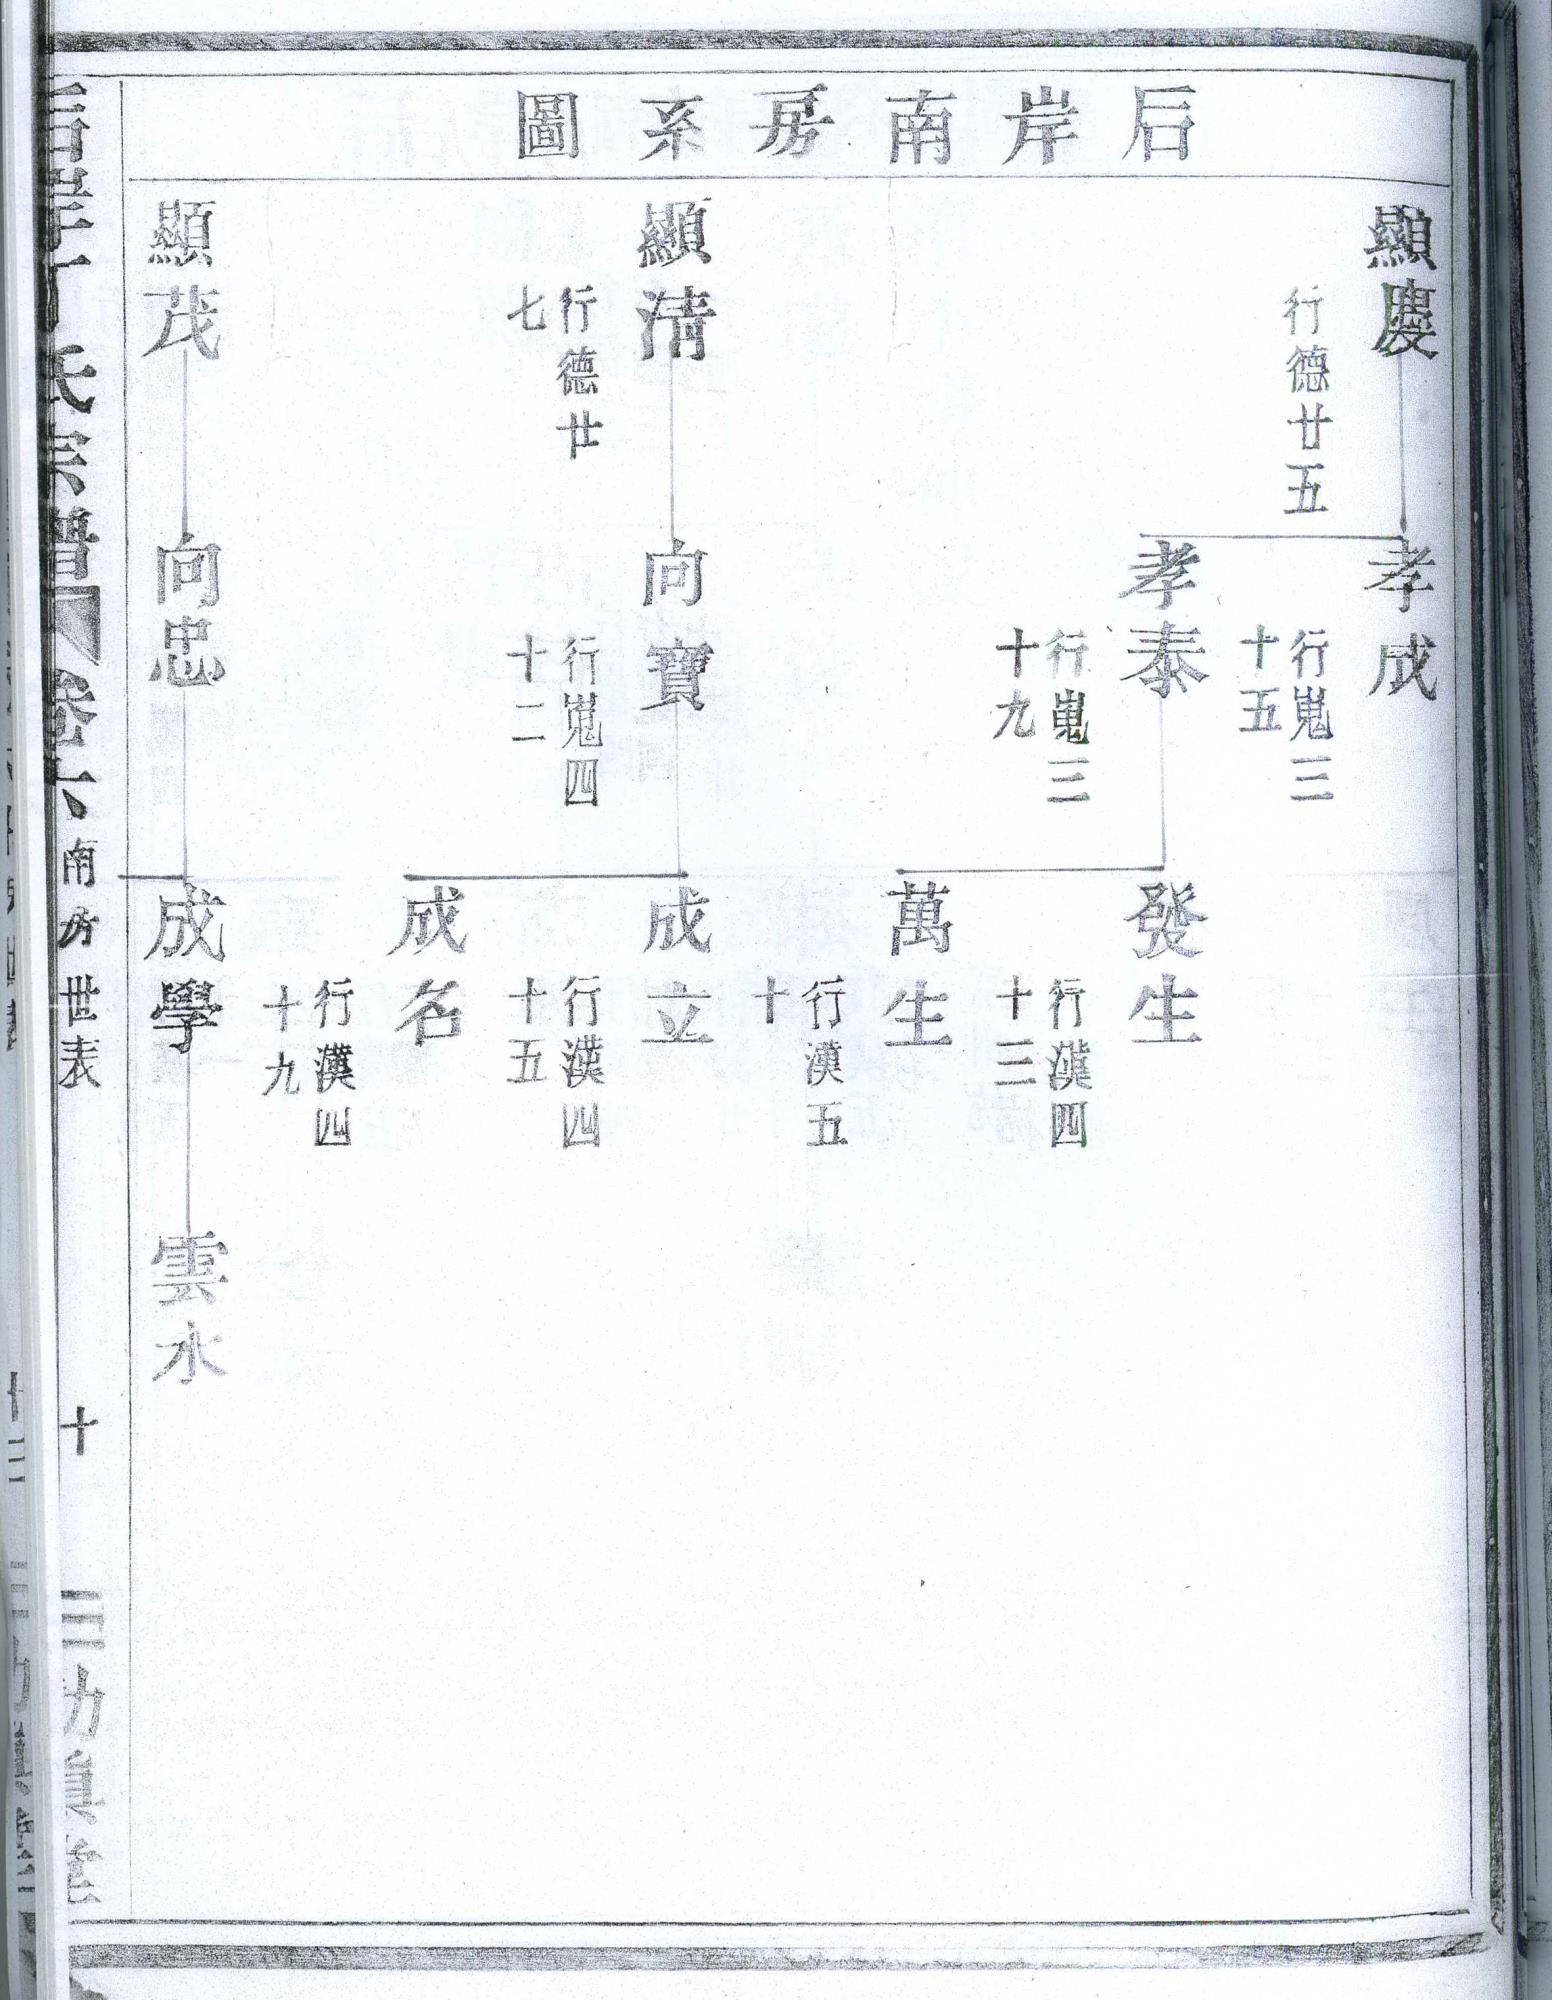 后岸南房系圖
顯慶
行德廿五
孝成
行嵬三
十五
孝泰
行嵬三
十九
發生
行漢四
十三
萬生
行漢五
十
顯清
行德廿
七
向寶
行嵬四
十二
成立
行漢四
十五
成名
行漢四
十九
顯茂
向忠
成學
雲水
后岸丁氏宗譜 卷六 南房世表 十